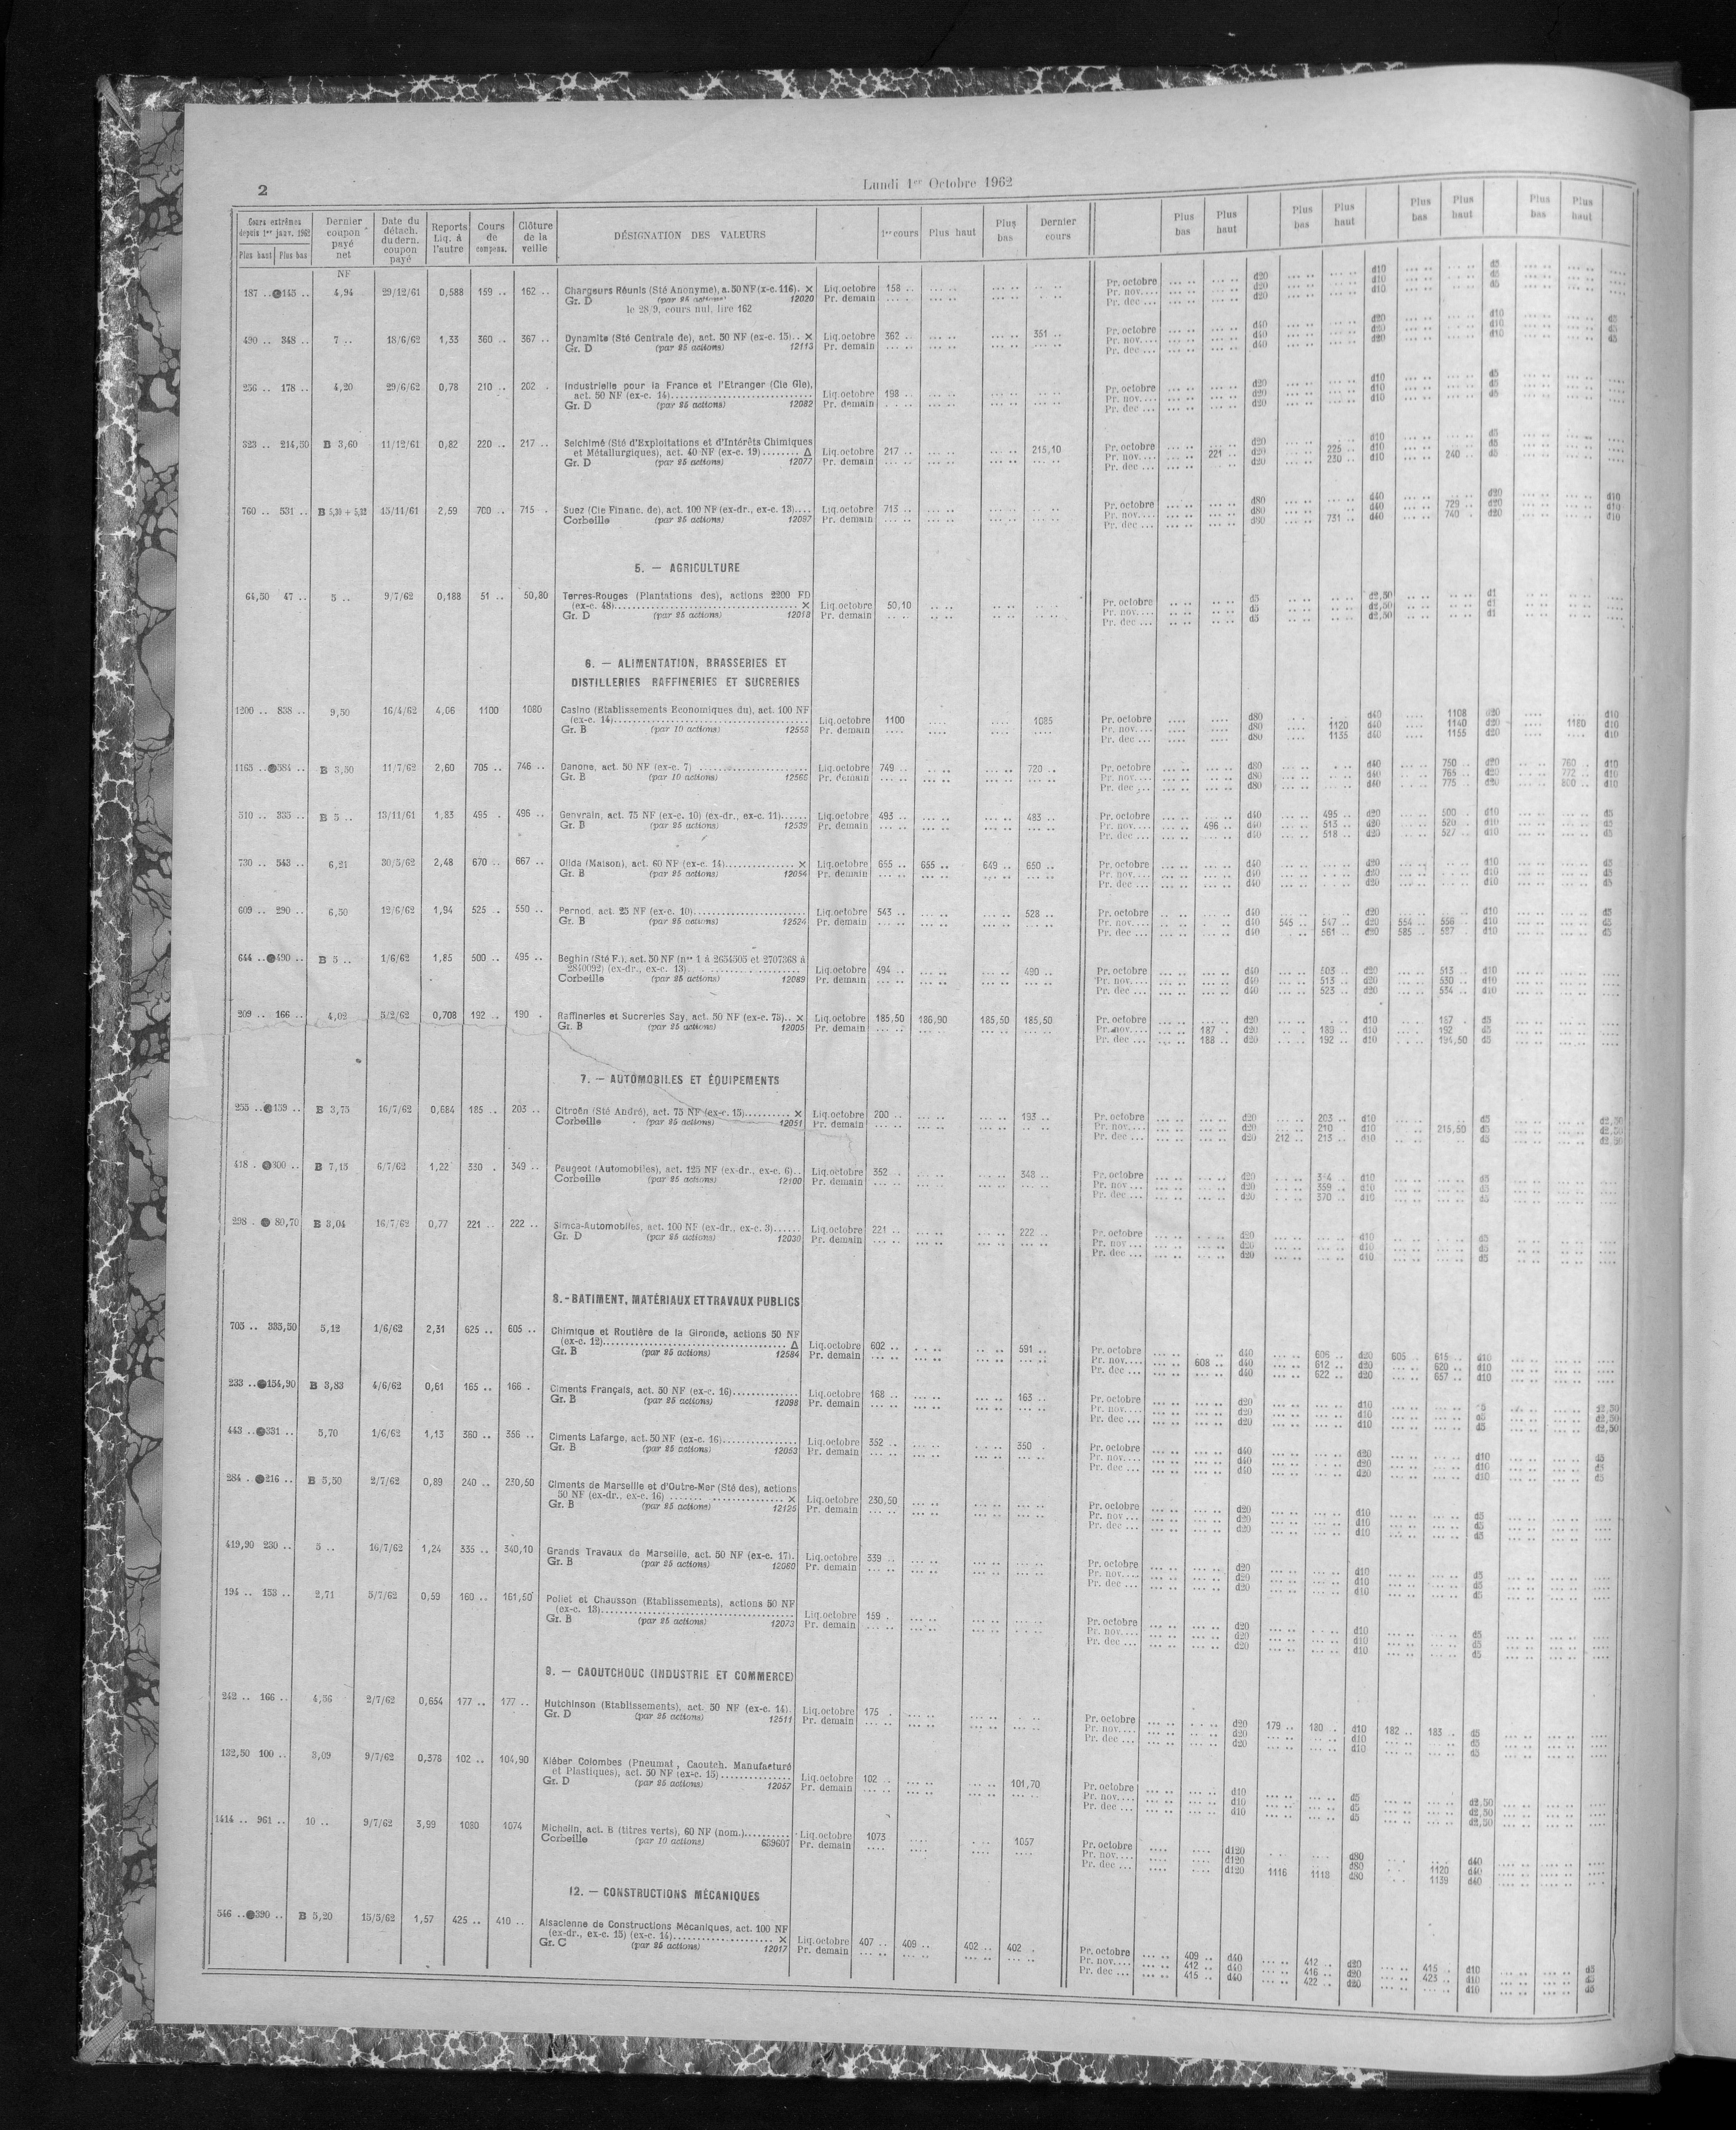 2
Lundi 1er Octobre 1962
Cours extrêmes depuis 1er janv. 1962 Plus haut Plus bas | Dernier coupon payé net | Date du détach. du dern. coupon payé | Reports Liq. à l'autre | Cours de compens. | Clôture de la veille | DÉSIGNATION DES VALEURS | 1er cours | Plus haut | Plus bas | Dernier cours | Plus bas | Plus haut | Plus bas | Plus haut | Plus bas | Plus haut | Plus bas | Plus haut
NF
187 .. 145 .. 4,94 29/12/61 0,588 159 .. 162 .. Chargeurs Réunis (Sté Anonyme), a. 50 NF (x-c. 116). × Liq. octobre 158 .. Pr. octobre d20 d10 d5
Gr. D (par 25 actions) 12020 Pr. demain Pr. nov. d20 d10 d5
le 28/9, cours nul, lire 162 Pr. dec ... d20 d10 d5
490 .. 348 .. 7 .. 18/6/62 1,33 360 .. 367 .. Dynamite (Sté Centrale de), act. 50 NF (ex-c. 15).. × Liq. octobre 362 .. 351 .. Pr. octobre d40 d20 d10 d5
Gr. D (par 25 actions) 12113 Pr. demain Pr. nov. d40 d20 d10 d5
Pr. dec ... d40 d20 d10 d5
256 .. 178 .. 4,20 29/6/62 0,78 210 .. 202 . Industrielle pour la France et l'Etranger (Cie Gle),
act. 50 NF (ex-c. 14) Liq. octobre 198 .. Pr. octobre d20 d10 d5
Gr. D (par 25 actions) 12082 Pr. demain Pr. nov. d20 d10 d5
Pr. dec ... d20 d10 d5
323 .. 214,50 B 3,60 11/12/61 0,82 220 .. 217 .. Selchimé (Sté d'Exploitations et d'Intérêts Chimiques
et Métallurgiques), act. 40 NF (ex-c. 19) ........ Δ Liq. octobre 217 .. 215,10 Pr. octobre d20 d10 d5
Gr. D (par 25 actions) 12077 Pr. demain Pr. nov. 221 .. d20 225 .. d10 d5
Pr. dec ... d20 230 .. d10 240 .. d5
760 .. 531 .. B 5,30 + 5,32 15/11/61 2,59 700 .. 715 . Suez (Cie Financ. de), act. 100 NF (ex-dr., ex-c. 13).... Liq. octobre 713 .. Pr. octobre d80 d40 d20 d10
Corbeille (par 25 actions) 12097 Pr. demain Pr. nov. d80 d40 729 .. d20 d10
Pr. dec ... d80 731 .. d40 740 . d20 d10
5. — AGRICULTURE
64,50 47 .. 5 .. 9/7/62 0,188 51 .. 50,80 Terres-Rouges (Plantations des), actions 2200 FD
(ex-c. 48) × Liq. octobre 50,10 Pr. octobre d5 d2,50 d1
Gr. D (par 25 actions) 12018 Pr. demain Pr. nov. d5 d2,50 d1
Pr. dec ... d5 d2,50 d1
6. — ALIMENTATION, BRASSERIES ET
DISTILLERIES RAFFINERIES ET SUCRERIES
1200 .. 838 .. 9,50 16/4/62 4,06 1100 1080 Casino (Etablissements Economiques du), act. 100 NF
(ex-c. 14) Liq. octobre 1100 1085 Pr. octobre d80 d40 1108 d20 d10
Gr. B (par 10 actions) 12558 Pr. demain Pr. nov. d80 1120 d40 1140 d20 1180 d10
Pr. dec ... d80 1135 d40 1155 d20 d10
1165 .. 584 .. B 3,50 11/7/62 2,60 705 .. 746 .. Danone, act. 50 NF (ex-c. 7) Liq. octobre 749 .. 720 .. Pr. octobre d80 d40 750 .. d20 760 . d10
Gr. B (par 10 actions) 12566 Pr. demain Pr. nov. d80 d40 765 .. d20 772 .. d10
Pr. dec ... d80 d40 775 .. d20 800 .. d10
510 .. 335 .. B 5 .. 13/11/61 1,83 495 . 496 .. Genvrain, act. 75 NF (ex-c. 10) (ex-dr., ex-c. 11)...... Liq. octobre 493 .. 483 .. Pr. octobre d40 495 .. d20 500 .. d10 d5
Gr. B (par 25 actions) 12539 Pr. demain Pr. nov. 496 .. d40 513 .. d20 520 .. d10 d5
Pr. dec ... d40 518 .. d20 527 .. d10 d5
730 .. 543 .. 6,21 30/5/62 2,48 670 .. 667 .. Olida (Maison), act. 60 NF (ex-c. 14) × Liq. octobre 655 .. 655 .. 649 .. 650 .. Pr. octobre d40 d20 d10 d5
Gr. B (par 25 actions) 12054 Pr. demain Pr. nov. d40 d20 d10 d5
Pr. dec ... d40 d20 d10 d5
609 .. 290 .. 6,50 12/6/62 1,94 525 .. 550 .. Pernod, act. 25 NF (ex-c. 10) Liq. octobre 543 .. 528 .. Pr. octobre d40 d20 d10 d5
Gr. B (par 25 actions) 12524 Pr. demain Pr. nov. d40 545 .. 547 .. d20 554 .. 556 .. d10 d5
Pr. dec ... d40 561 .. d20 585 .. 587 .. d10 d5
644 .. 490 .. B 5 .. 1/6/62 1,85 500 .. 495 .. Beghin (Sté F.), act. 50 NF (nos 1 à 2654505 et 2707368 à
2840092) (ex-dr., ex-c. 13) Liq. octobre 494 .. 490 .. Pr. octobre d40 503 .. d20 513 .. d10
Corbeille (par 25 actions) 12089 Pr. demain Pr. nov. d40 513 .. d20 530 .. d10
Pr. dec ... d40 523 .. d20 534 .. d10
209 .. 166 .. 4,02 5/2/62 0,708 192 .. 190 . Raffineries et Sucreries Say, act. 50 NF (ex-c. 73).. × Liq. octobre 185,50 186,90 185,50 185,50 Pr. octobre d20 d10 187 . d5
Gr. B (par 25 actions) 12005 Pr. demain Pr. nov. 187 .. d20 189 .. d10 192 d5
Pr. dec ... 188 .. d20 192 .. d10 194,50 d5
7. — AUTOMOBILES ET ÉQUIPEMENTS
255 .. 139 .. B 3,75 16/7/62 0,684 185 .. 203 .. Citroën (Sté André), act. 75 NF (ex-c. 15) × Liq. octobre 200 .. 193 .. Pr. octobre d20 203 .. d10 d5 d2,50
Corbeille (par 25 actions) 12051 Pr. demain Pr. nov. d20 210 d10 215,50 d5 d2,50
Pr. dec ... d20 212 .. 213 .. d10 d5 d2,50
418 . 300 .. B 7,15 6/7/62 1,22 330 . 349 .. Peugeot (Automobiles), act. 125 NF (ex-dr., ex-c. 6).. Liq. octobre 352 .. 348 .. Pr. octobre d20 d10 d5
Corbeille (par 25 actions) 12100 Pr. demain Pr. nov ... d20 359 .. d10 d5
Pr. dec ... d20 370 .. d10 d5
298 . 80,70 B 3,04 16/7/62 0,77 221 .. 222 .. Simca-Automobiles, act. 100 NF (ex-dr., ex-c. 3)...... Liq. octobre 221 .. 222 .. Pr. octobre d20 d10 d5
Gr. D (par 25 actions) 12030 Pr. demain Pr. nov ... d20 d10 d5
Pr. dec ... d20 d10 d5
8. - BATIMENT, MATÉRIAUX ET TRAVAUX PUBLICS
705 .. 335,50 5,12 1/6/62 2,31 625 .. 605 .. Chimique et Routière de la Gironde, actions 50 NF
(ex-c. 12) Δ Liq. octobre 602 .. 591 .. Pr. octobre d40 606 .. d20 605 .. 615 .. d10
Gr. B (par 25 actions) 12584 Pr. demain Pr. nov. 608 .. d40 612 .. d20 620 .. d10
Pr. dec ... d40 622 .. d20 657 .. d10
233 .. 154,90 B 3,83 4/6/62 0,61 165 .. 166 . Ciments Français, act. 50 NF (ex-c. 16) Liq. octobre 168 .. 163 .. Pr. octobre d20 d10 d2,50
Gr. B (par 25 actions) 12098 Pr. demain Pr. nov. d20 d10 d5 d2,50
Pr. dec ... d20 d10 d5 d2,50
443 .. 331 .. 5,70 1/6/62 1,13 360 .. 356 .. Ciments Lafarge, act. 50 NF (ex-c. 16) Liq. octobre 352 .. 350 . Pr. octobre d40 d20 d10 d5
Gr. B (par 25 actions) 12053 Pr. demain Pr. nov. d40 d20 d10 d5
Pr. dec ... d40 d20 d10 d5
284 . 216 .. B 5,50 2/7/62 0,89 240 .. 230,50 Ciments de Marseille et d'Outre-Mer (Sté des), actions
50 NF (ex-dr., ex-c. 16) × Liq. octobre 230,50 Pr. octobre d20 d10 d5
Gr. B (par 25 actions) 12125 Pr. demain Pr. nov ... d20 d10 d5
Pr. dec ... d20 d10 d5
419,90 230 .. 5 .. 16/7/62 1,24 335 .. 340,10 Grands Travaux de Marseille, act. 50 NF (ex-c. 17). Liq. octobre 339 .. Pr. octobre d20 d10 d5
Gr. B (par 25 actions) 12060 Pr. demain Pr. nov. d20 d10 d5
Pr. dec ... d20 d10 d5
194 .. 153 .. 2,71 5/7/62 0,59 160 .. 161,50 Poliet et Chausson (Etablissements), actions 50 NF
(ex-c. 13) Liq. octobre 159 . Pr. octobre d20 d10 d5
Gr. B (par 25 actions) 12073 Pr. demain Pr. nov. d20 d10 d5
Pr. dec ... d20 d10 d5
9. — CAOUTCHOUC (INDUSTRIE ET COMMERCE)
242 .. 166 .. 4,56 2/7/62 0,654 177 .. 177 .. Hutchinson (Etablissements), act. 50 NF (ex-c. 14). Liq. octobre 175 . Pr. octobre d20 179 .. 180 .. d10 182 .. 183 .. d5
Gr. D (par 25 actions) 12511 Pr. demain Pr. nov. d20 d10 d5
Pr. dec ... d20 d10 d5
132,50 100 .. 3,09 9/7/62 0,378 102 .. 104,90 Kléber Colombes (Pneumat , Caoutch. Manufacturé
et Plastiques), act. 50 NF (ex-c. 13) Liq. octobre 102 . 101,70 Pr. octobre d10 d5 d2,50
Gr. D (par 25 actions) 12057 Pr. demain Pr. nov. d10 d5 d2,50
Pr. dec ... d10 d5 d2,50
1414 .. 961 .. 10 .. 9/7/62 3,99 1080 1074 Michelin, act. B (titres verts), 60 NF (nom.) Liq. octobre 1073 1057 Pr. octobre d120 d80 d40
Corbeille (par 10 actions) 639607 Pr. demain Pr. nov. d120 d80 1120 d40
Pr. dec ... d120 1116 1118 d80 1139 d40
12. — CONSTRUCTIONS MÉCANIQUES
546 .. 390 .. B 5,20 15/5/62 1,57 425 .. 410 .. Alsacienne de Constructions Mécaniques, act. 100 NF
(ex-dr., ex-c. 15) (ex-c. 14) × Liq. octobre 407 .. 409 .. 402 .. 402 . Pr. octobre 409 .. d40 412 .. d20 415 . d10 d5
Gr. C (par 25 actions) 12017 Pr. demain Pr. nov. 412 .. d40 416 .. d20 423 .. d10 d5
Pr. dec ... 415 .. d40 422 .. d20 d10 d5